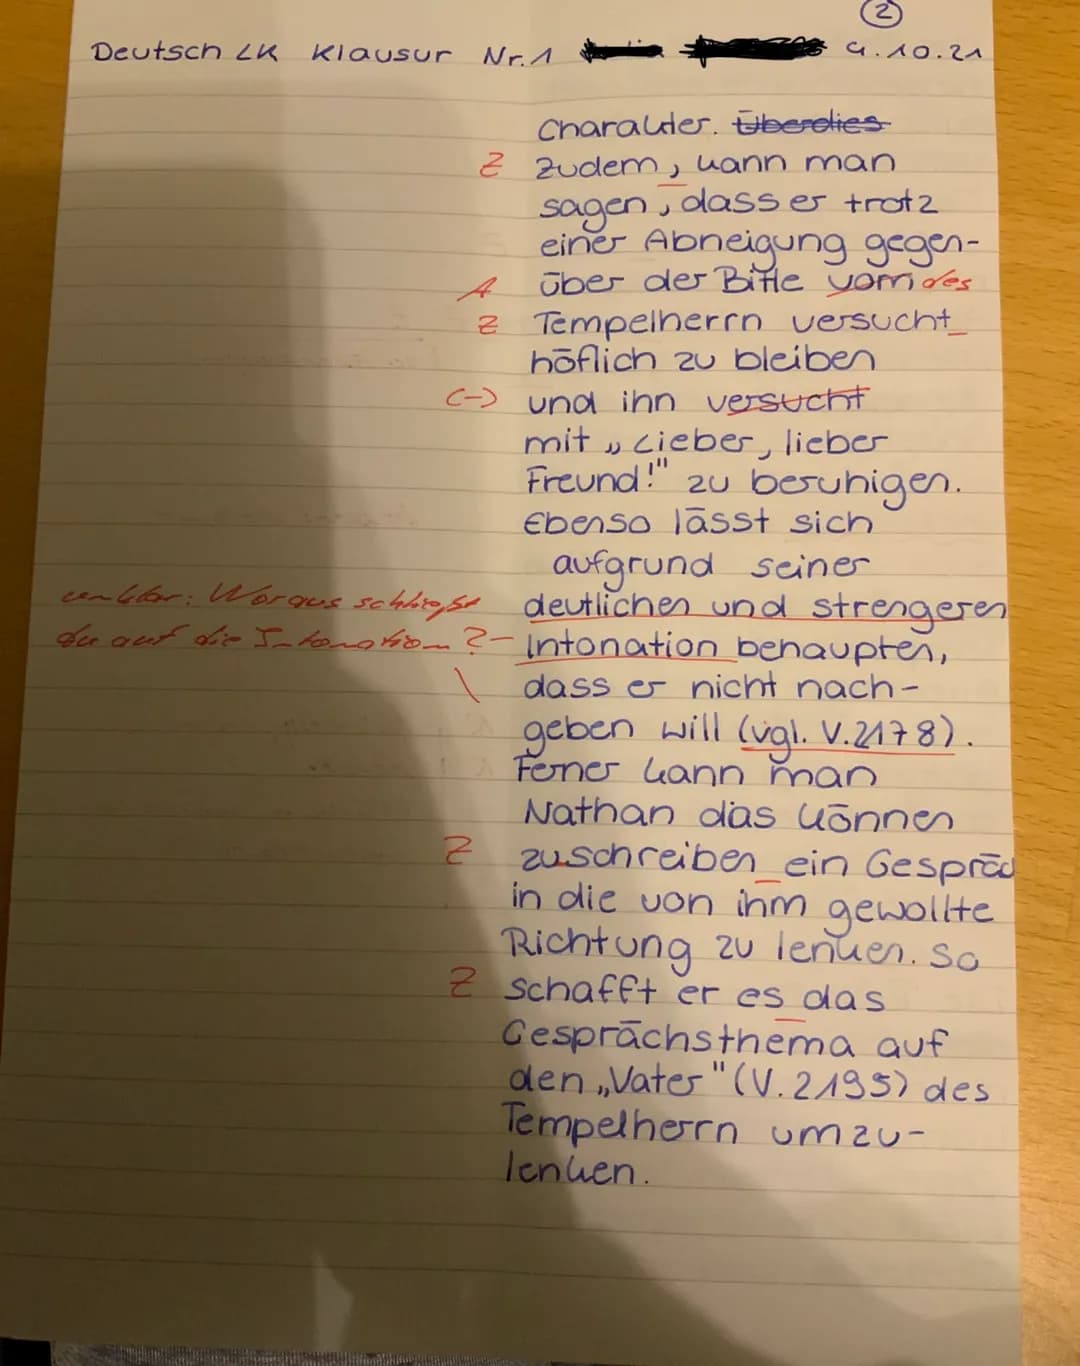 2
Deutsch LK Klausur Nr.1 4.10.21
Charakter. Überdies
Z Zudem, kann man
sagen, dass er trotz
einer Abneigung gegen-
A über der Bitte vom des
Z Tempelherrn versucht
höflich zu bleiben
(-) und ihn versucht
mit „Lieber, lieber
Freund!" zu beruhigen.
Ebenso lässt sich
aufgrund seiner
unklar: Woraus schließst deutlichen und strengeren
du auf die Intonation? - Intonation behaupten,
\ dass er nicht nach-
geben will (vgl. V.2178).
Ferner kann man
Nathan das können
Z zuschreiben ein Gespräc
in die von ihm gewollte
Richtung zu lenken. So
Z schafft er es das
Gesprächsthema auf
den „Vater" (V.2195) des
Tempelherrn umzu-
lenken.